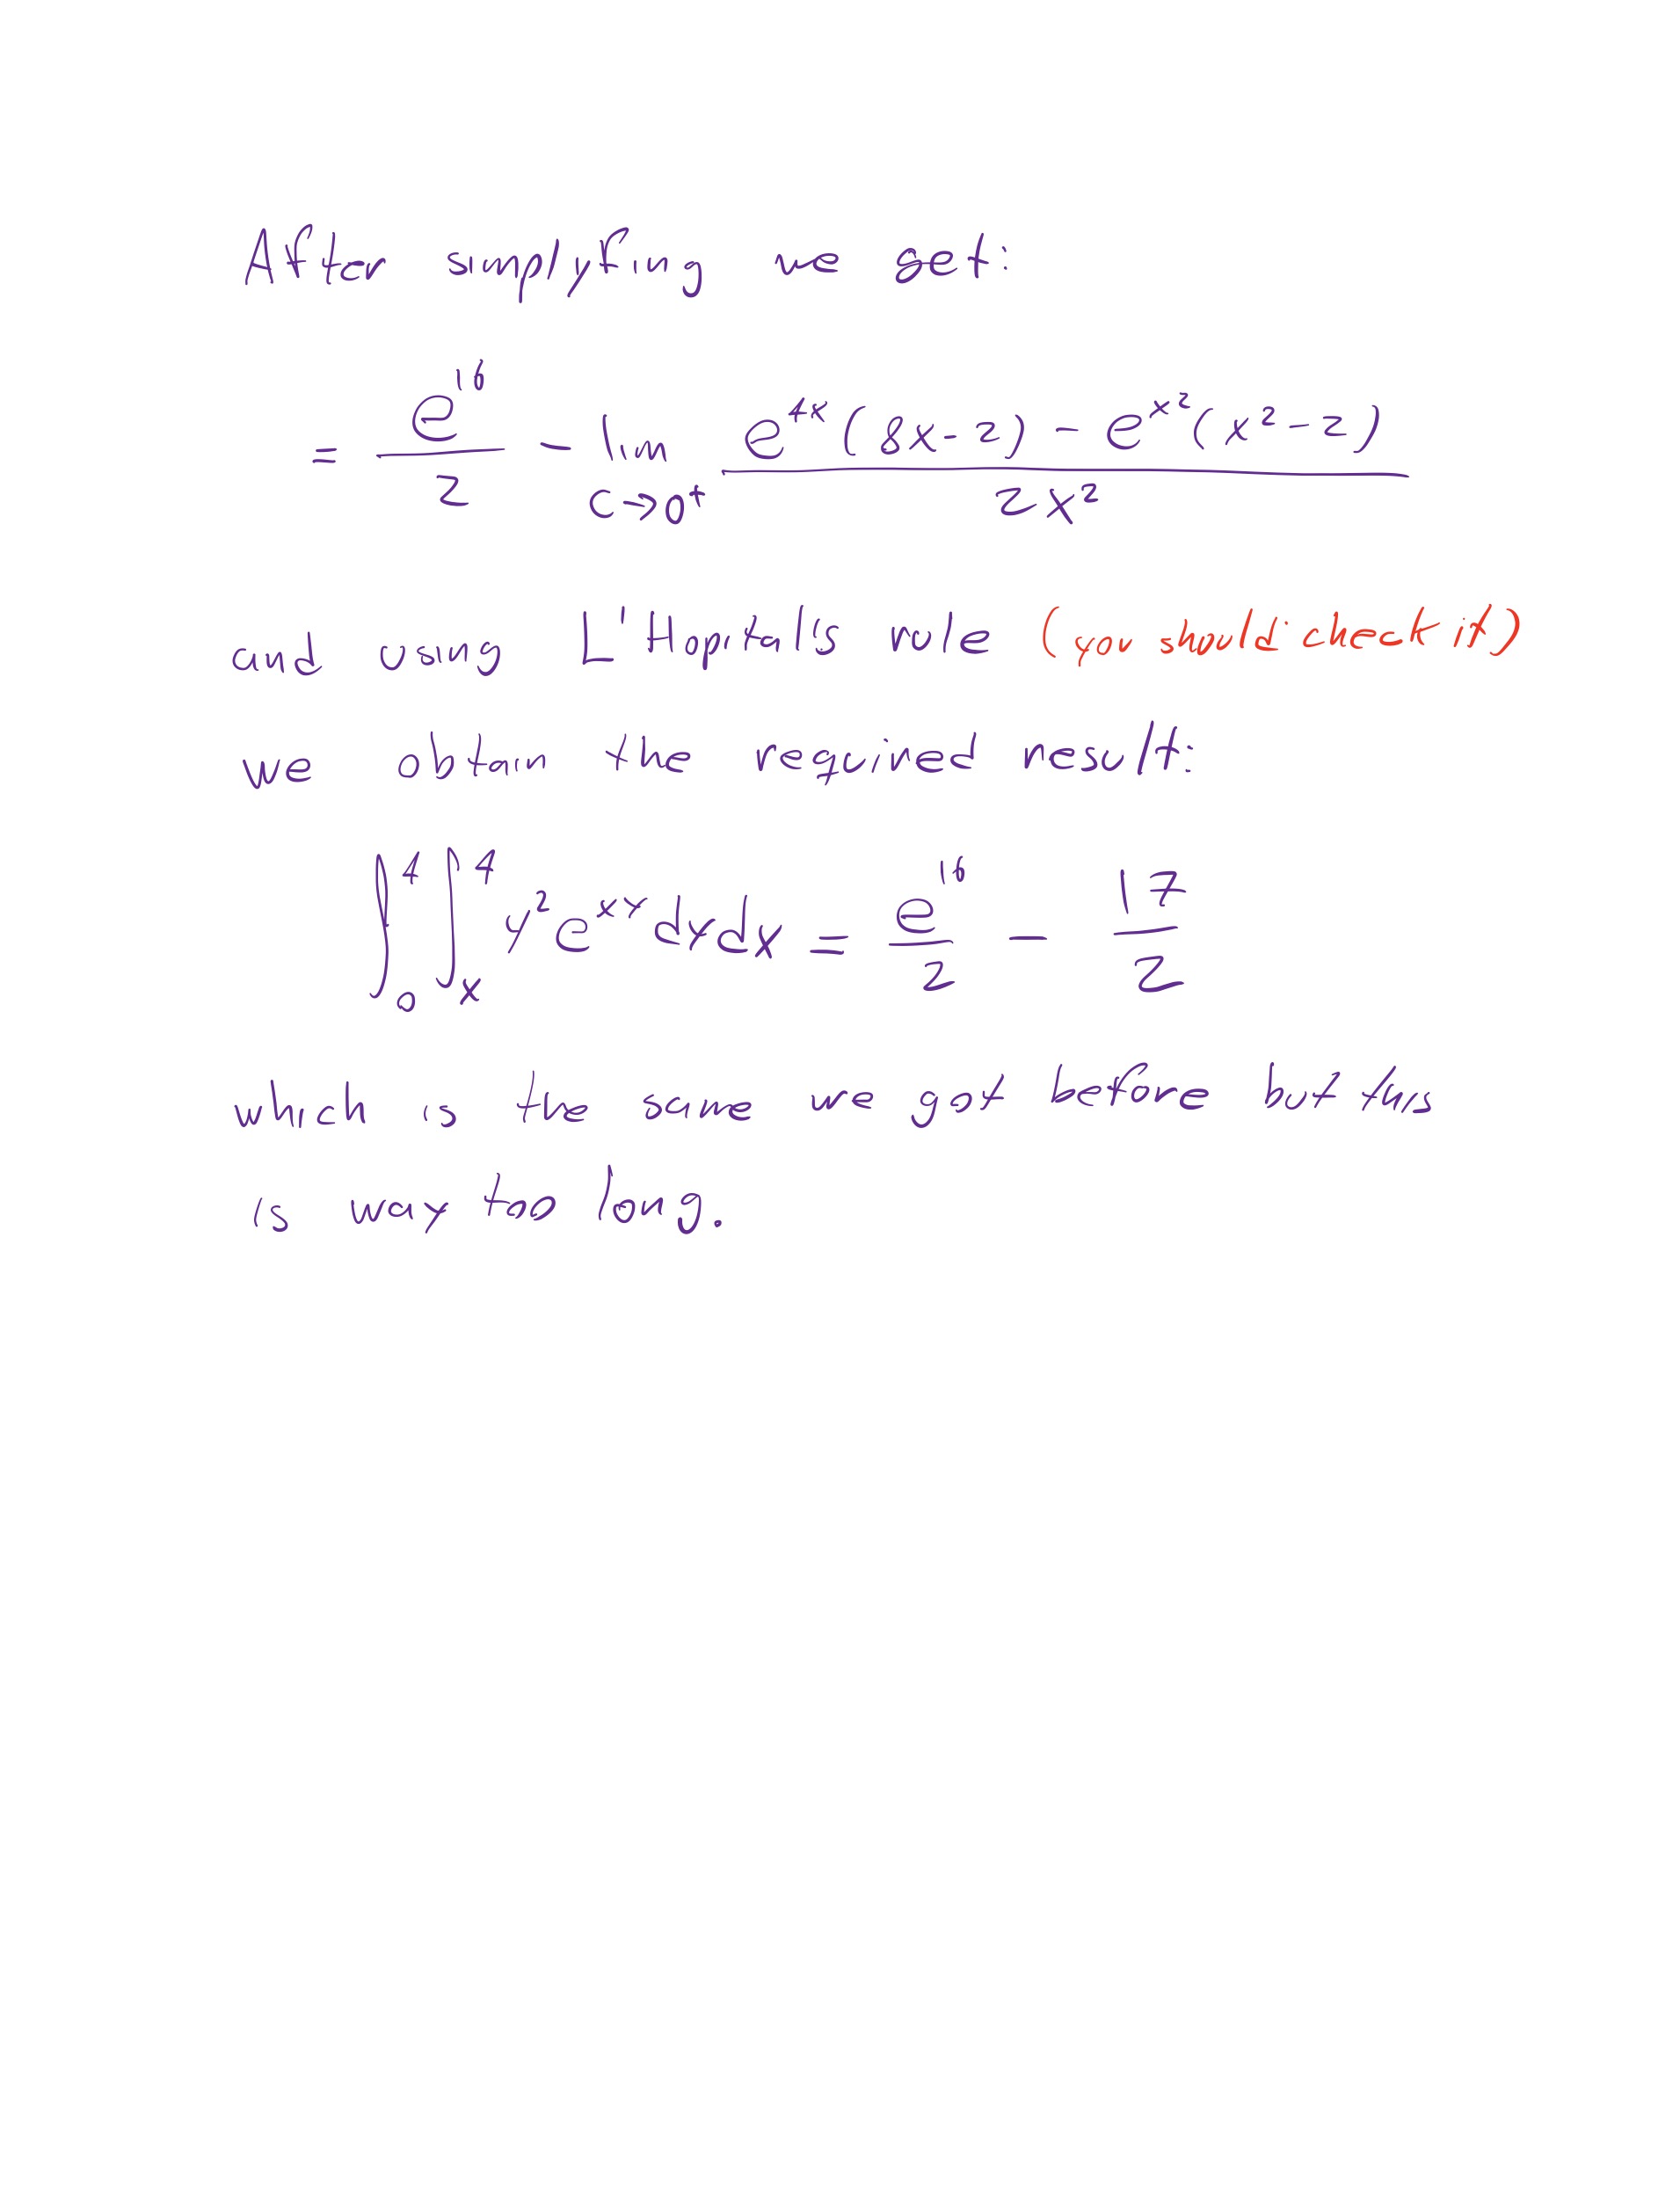 After simplyfing we get:
= e^16/2 - lim C→0⁺ (e^4x (8x-2) - e^x² (x²-2))/2x²
and using L'Hopital's rule (you should check it)
we obtain the required result:
∫₀⁴ ∫ₓ⁴ y² e^xy dy dx = e^16/2 - 17/2
which is the same we got before but this
is way too long.